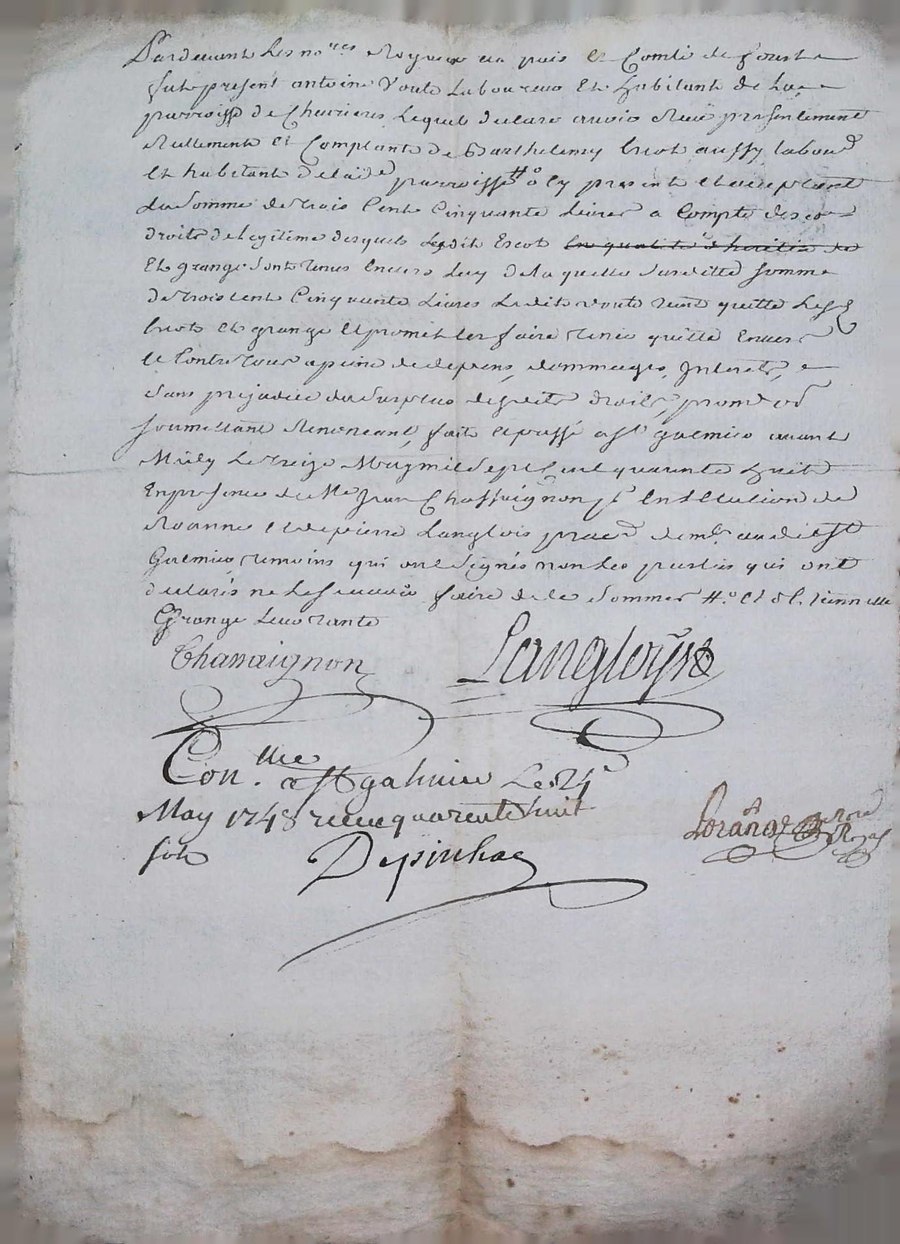 Pardevant Les no.res Royaux au pais et Comté de forest
fut present antoine Voute Laboureur Et habitant de La
parroisse de Cherieres Lequel declare avoir Reçu presentement
Reellement et Comptant de Barthelemy Escot aussy labour
Et habitant de lad. parroisse #o Cy present et acceptant
La Somme de trois Cent Cinquante Livres a Compte des
droits de Legitime desquels Ledit Escot en qualité d'heritier de
Et grange sont tenus Envers Luy de laquelle susditte somme
de trois cent Cinquante Livres Ledit voute tient quitte Les
Escot et grange et promet les faire tenir quitte Envers
et Contre tous a peine de depens, dommages, Interets, et
sans prejudice du Surplus desdits droits, prom
soumettant Renonçant, fait et passé a St galmier avant
Midy Le treize May mil Sept Cent quarante huit
En presence de Me Jean Chassaignon En Election de
Roanne et de pierre Langlois audit St
Galmier temoins qui ont Signés non Les parties qui ont
declarés ne Le sçavoir faire de ce sommés #o et
Grange
Chassaignon Langloys
Con.lle a St galmier Le 24e
May 1748 reçu quarente huit
sols Depinhac
Lorange Not.re Royal